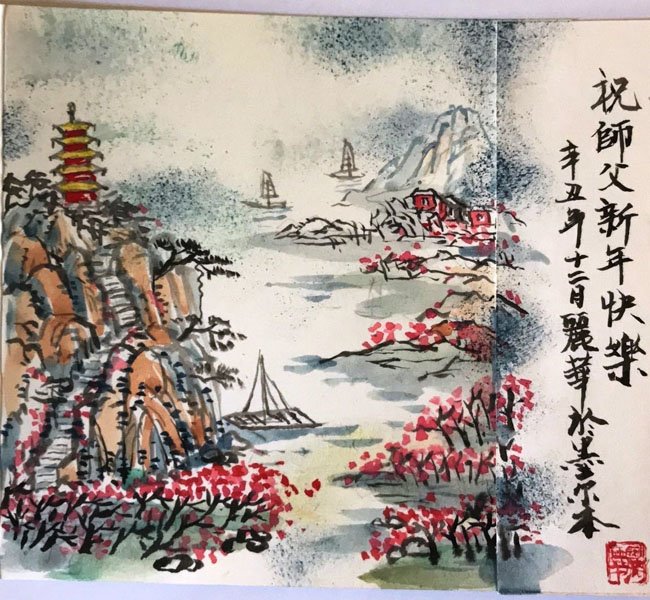 祝師父新年快樂
辛丑年十二月麗華於墨尔本